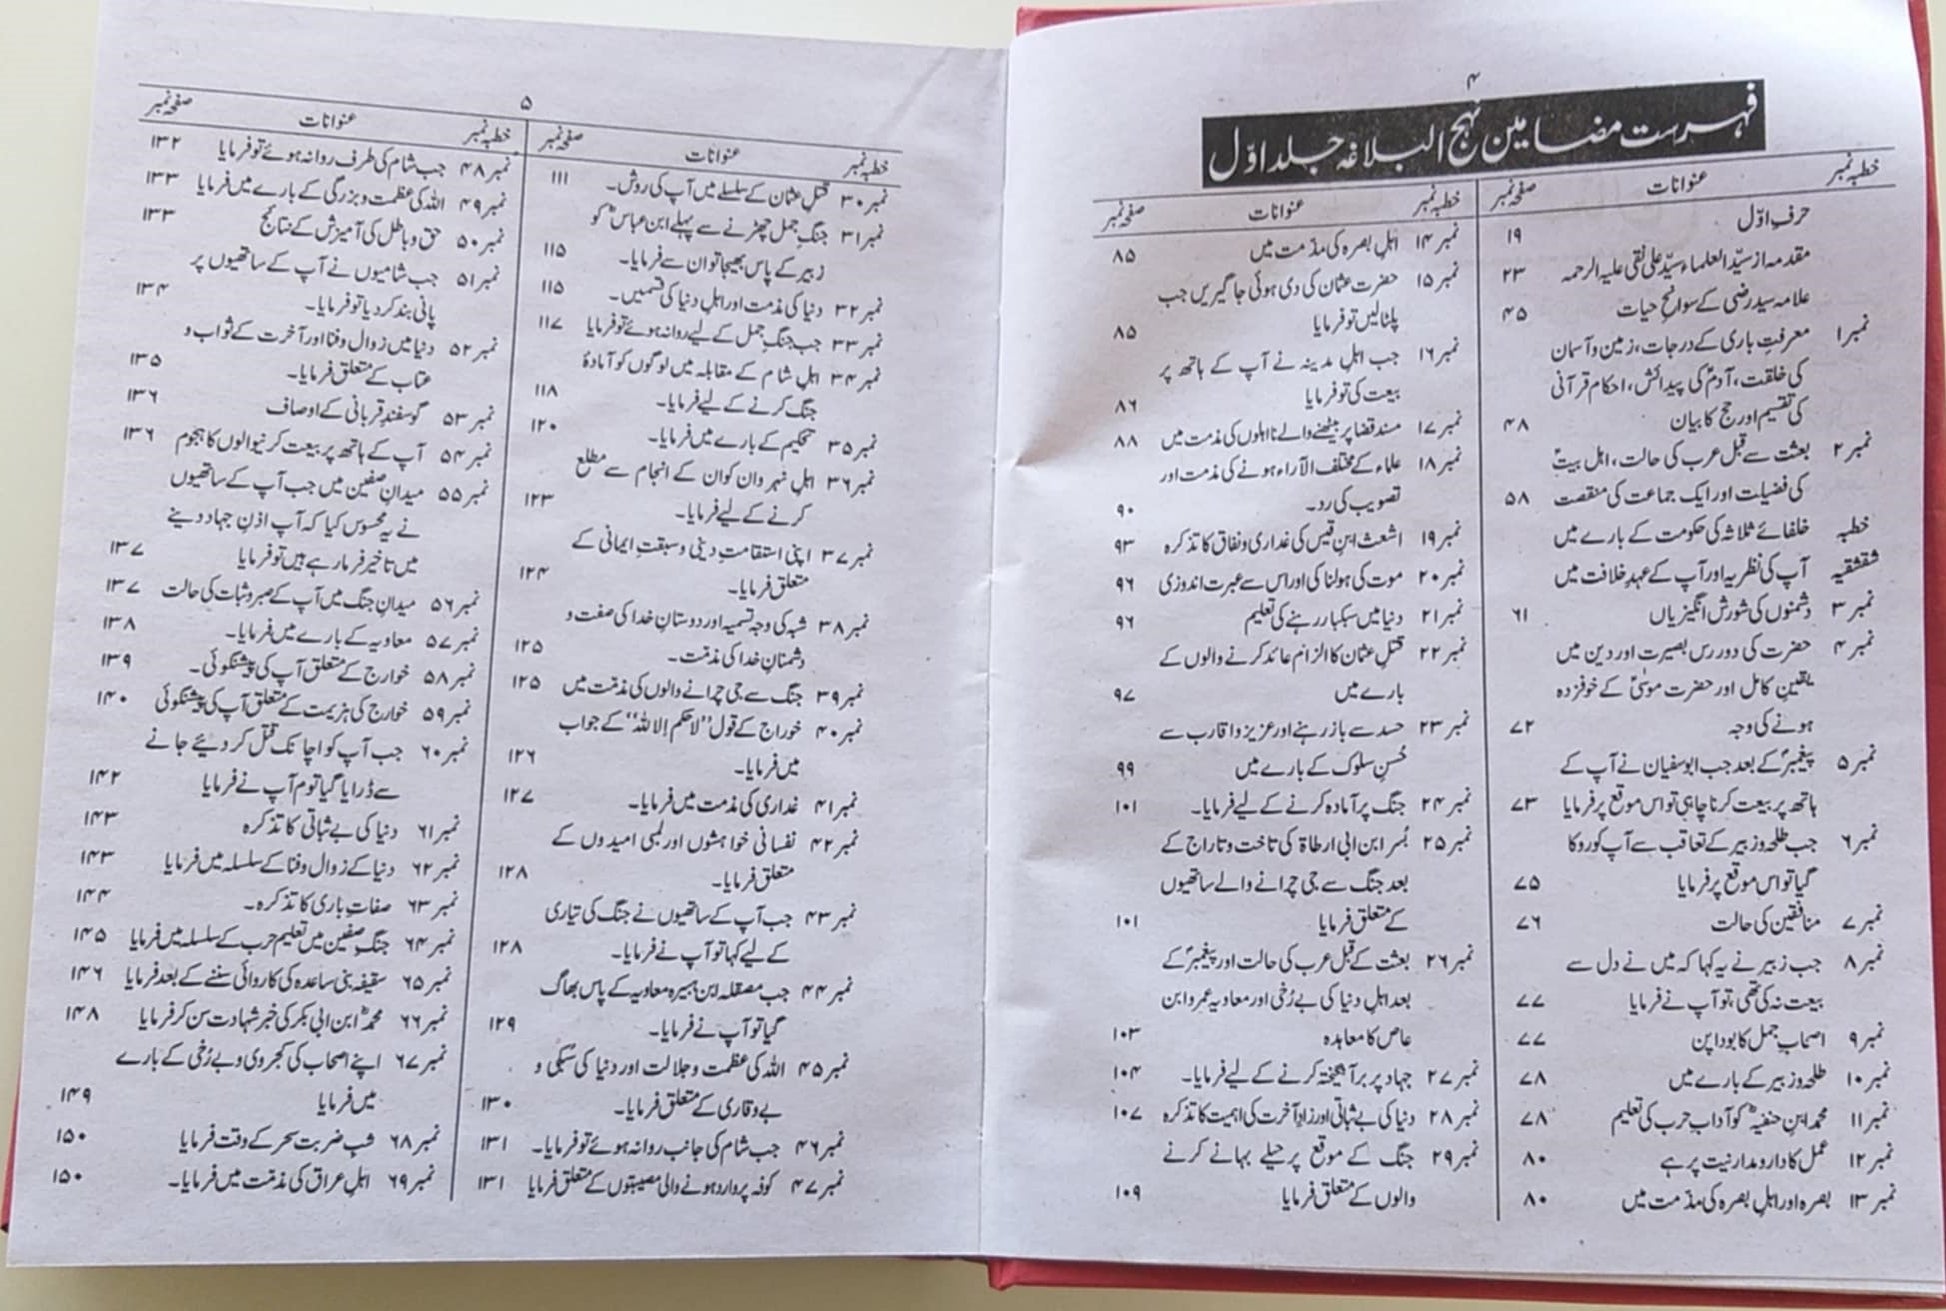 ۴
فہرست مضامین نہج البلاغہ جلد اوّل
خطبہ نمبر عنوانات صفحہ نمبر
حرفِ اوّل ۱۹
مقدمہ از سیّد العلماء سیّد علی نقی علیہ الرحمہ ۲۳
علامہ سید رضی کے سوانح حیات ۴۵
نمبر ۱ معرفتِ باری کے درجات، زمین و آسمان
کی خلقت، آدمؑ کی پیدائش، احکام قرآنی
کی تقسیم اور حج کا بیان ۴۸
نمبر ۲ بعثت سے قبل عرب کی حالت، اہل بیتؑ
کی فضیلت اور ایک جماعت کی منقصت ۵۸
خطبہ خلفائے ثلاثہ کی حکومت کے بارے میں
شقشقیہ آپ کی نظریہ اور آپ کے عہدِ خلافت میں
نمبر ۳ دشمنوں کی شورش انگیزیاں ۶۱
نمبر ۴ حضرت کی دور رس بصیرت اور دین میں
یقینِ کامل اور حضرت موسیٰؑ کے خوفزدہ
ہونے کی وجہ ۷۲
نمبر ۵ پیغمبرؐ کے بعد جب ابوسفیان نے آپ کے
ہاتھ پر بیعت کرنا چاہی تو اس موقع پر فرمایا ۷۳
نمبر ۶ جب طلحہ و زبیر کے تعاقب سے آپ کو روکا
گیا تو اس موقع پر فرمایا ۷۵
نمبر ۷ منافقین کی حالت ۷۶
نمبر ۸ جب زبیر نے یہ کہا کہ میں نے دل سے
بیعت نہ کی تھی، تو آپ نے فرمایا ۷۷
نمبر ۹ اصحابِ جمل کا بودا پن ۷۷
نمبر ۱۰ طلحہ و زبیر کے بارے میں ۷۸
نمبر ۱۱ محمد ابنِ حنفیہؓ کو آدابِ حرب کی تعلیم ۷۸
نمبر ۱۲ عمل کا دار و مدار نیت پر ہے ۸۰
نمبر ۱۳ بصرہ اور اہلِ بصرہ کی مذمت میں ۸۰
خطبہ نمبر عنوانات صفحہ نمبر
نمبر ۱۴ اہلِ بصرہ کی مذمت میں ۸۵
نمبر ۱۵ حضرت عثمان کی دی ہوئی جاگیریں جب
پلٹا لیں تو فرمایا ۸۵
نمبر ۱۶ جب اہلِ مدینہ نے آپ کے ہاتھ پر
بیعت کی تو فرمایا ۸۶
نمبر ۱۷ مسند قضا پر بیٹھنے والے نااہلوں کی مذمت میں ۸۸
نمبر ۱۸ علماء کے مختلف الآراء ہونے کی مذمت اور
تصویب کی رد۔ ۹۰
نمبر ۱۹ اشعث ابنِ قیس کی غداری و نفاق کا تذکرہ ۹۳
نمبر ۲۰ موت کی ہولناکی اور اس سے عبرت اندوزی ۹۶
نمبر ۲۱ دنیا میں سبکبار رہنے کی تعلیم ۹۶
نمبر ۲۲ قتلِ عثمان کا الزام عائد کرنے والوں کے
بارے میں ۹۷
نمبر ۲۳ حسد سے باز رہنے اور عزیز و اقارب سے
حُسنِ سلوک کے بارے میں ۹۹
نمبر ۲۴ جنگ پر آمادہ کرنے کے لیے فرمایا۔ ۱۰۱
نمبر ۲۵ بُسر ابن ابی ارطاۃ کی تاخت و تاراج کے
بعد جنگ سے جی چرانے والے ساتھیوں
کے متعلق فرمایا ۱۰۱
نمبر ۲۶ بعثت کے قبل عرب کی حالت اور پیغمبرؐ کے
بعد اہلِ دنیا کی بے رُخی اور معاویہ عمرو ابن
عاص کا معاہدہ ۱۰۳
نمبر ۲۷ جہاد پر برآنگیختہ کرنے کے لیے فرمایا۔ ۱۰۴
نمبر ۲۸ دنیا کی بے ثباتی اور زادِ آخرت کی اہمیت کا تذکرہ ۱۰۷
نمبر ۲۹ جنگ کے موقع پر حیلے بہانے کرنے
والوں کے متعلق فرمایا ۱۰۹
۵
خطبہ نمبر عنوانات صفحہ نمبر
نمبر ۳۰ قتلِ عثمان کے سلسلے میں آپ کی روش۔ ۱۱۱
نمبر ۳۱ جنگِ جمل چھڑنے سے پہلے ابن عباسؓ کو
زبیر کے پاس بھیجا تو ان سے فرمایا۔ ۱۱۵
نمبر ۳۲ دنیا کی مذمت اور اہلِ دنیا کی قسمیں۔ ۱۱۵
نمبر ۳۳ جب جنگِ جمل کے لیے روانہ ہوئے تو فرمایا ۱۱۷
نمبر ۳۴ اہلِ شام کے مقابلہ میں لوگوں کو آمادۂ
جنگ کرنے کے لیے فرمایا۔ ۱۱۸
نمبر ۳۵ تحکیم کے بارے میں فرمایا۔ ۱۲۰
نمبر ۳۶ اہلِ نہروان کو ان کے انجام سے مطلع
کرنے کے لیے فرمایا۔ ۱۲۳
نمبر ۳۷ اپنی استقامتِ دینی و سبقتِ ایمانی کے
متعلق فرمایا۔ ۱۲۴
نمبر ۳۸ شبہ کی وجہ تسمیہ اور دوستانِ خدا کی صفت و
دشمنانِ خدا کی مذمّت۔ ۱۲۵
نمبر ۳۹ جنگ سے جی چرانے والوں کی مذمّت میں ۱۲۵
نمبر ۴۰ خوراج کے قول ’’لا حکم اِلا للہ‘‘ کے جواب
میں فرمایا۔ ۱۲۶
نمبر ۴۱ غداری کی مذمت میں فرمایا۔ ۱۲۷
نمبر ۴۲ نفسانی خواہشوں اور لمبی امیدوں کے
متعلق فرمایا۔ ۱۲۸
نمبر ۴۳ جب آپ کے ساتھیوں نے جنگ کی تیاری
کے لیے کہا تو آپ نے فرمایا۔ ۱۲۸
نمبر ۴۴ جب مصقلہ ابن ہبیرہ معاویہ کے پاس بھاگ
گیا تو آپ نے فرمایا۔ ۱۲۹
نمبر ۴۵ اللہ کی عظمت و جلالت اور دنیا کی سُبکی و
بے وقاری کے متعلق فرمایا۔ ۱۳۰
نمبر ۴۶ جب شام کی جانب روانہ ہوئے تو فرمایا۔ ۱۳۱
نمبر ۴۷ کوفہ پر وارد ہونے والی مصیبتوں کے متعلق فرمایا ۱۳۱
خطبہ نمبر عنوانات صفحہ نمبر
نمبر ۴۸ جب شام کی طرف روانہ ہوئے تو فرمایا ۱۳۲
نمبر ۴۹ اللہ کی عظمت و بزرگی کے بارے میں فرمایا ۱۳۳
نمبر ۵۰ حق و باطل کی آمیزش کے نتائج ۱۳۳
نمبر ۵۱ جب شامیوں نے آپ کے ساتھیوں پر
پانی بند کر دیا تو فرمایا۔ ۱۳۴
نمبر ۵۲ دنیا میں زوال و فنا اور آخرت کے ثواب و
عتاب کے متعلق فرمایا۔ ۱۳۵
نمبر ۵۳ گوسفندِ قربانی کے اوصاف ۱۳۶
نمبر ۵۴ آپ کے ہاتھ پر بیعت کرنیوالوں کا ہجوم ۱۳۶
نمبر ۵۵ میدانِ صفین میں جب آپ کے ساتھیوں
نے یہ محسوس کیا کہ آپ اذنِ جہاد دینے
میں تاخیر فرما رہے ہیں تو فرمایا ۱۳۷
نمبر ۵۶ میدانِ جنگ میں آپ کے صبر و ثبات کی حالت ۱۳۷
نمبر ۵۷ معاویہ کے بارے میں فرمایا۔ ۱۳۸
نمبر ۵۸ خوارج کے متعلق آپ کی پیشنگوئی۔ ۱۳۹
نمبر ۵۹ خوارج کی ہزیمت کے متعلق آپ کی پیشنگوئی ۱۴۰
نمبر ۶۰ جب آپ کو اچانک قتل کر دئیے جانے
سے ڈرایا گیا توم آپ نے فرمایا ۱۴۲
نمبر ۶۱ دنیا کی بے ثباتی کا تذکرہ ۱۴۳
نمبر ۶۲ دنیا کے زوال و فنا کے سلسلہ میں فرمایا ۱۴۳
نمبر ۶۳ صفاتِ باری کا تذکرہ۔ ۱۴۴
نمبر ۶۴ جنگِ صفین میں تعلیم حرب کے سلسلہ میں فرمایا ۱۴۵
نمبر ۶۵ سقیفہ بنی ساعدہ کی کاروائی سننے کے بعد فرمایا ۱۴۶
نمبر ۶۶ محمدؓ ابن ابی بکر کی خبر شہادت سن کر فرمایا ۱۴۸
نمبر ۶۷ اپنے اصحاب کی کجروی و بے رُخی کے بارے
میں فرمایا ۱۴۹
نمبر ۶۸ شبِ ضربت سحر کے وقت فرمایا ۱۵۰
نمبر ۶۹ اہلِ عراق کی مذمّت میں فرمایا۔ ۱۵۰